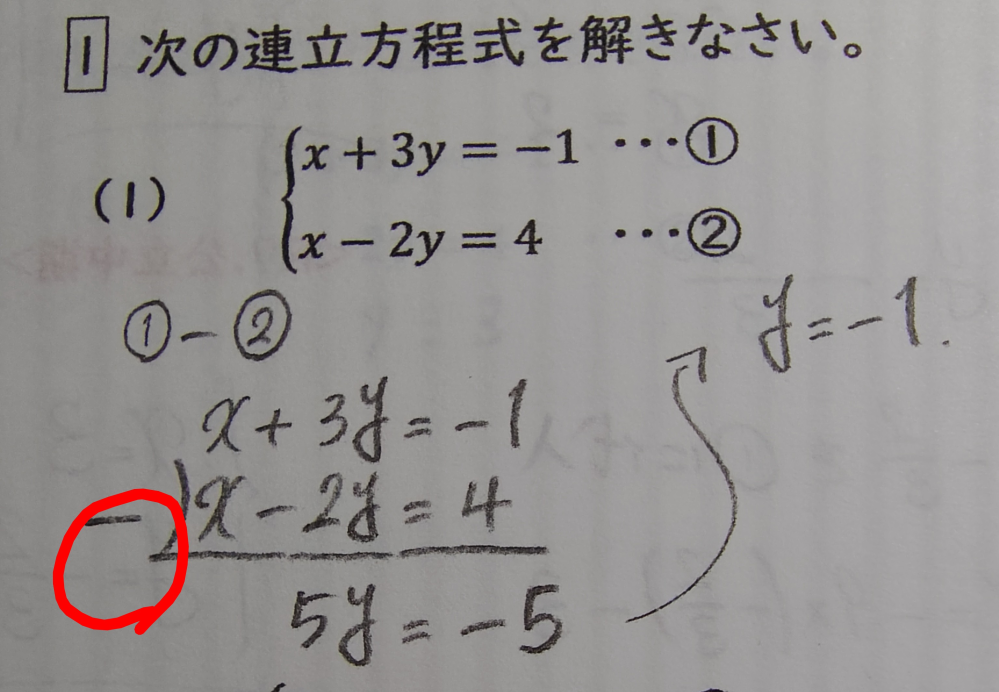 1 次の連立方程式を解きなさい。
(1)
x + 3y = -1 ･･･①
x - 2y = 4 ･･･②
① - ②
x + 3y = -1
-) x - 2y = 4
5y = -5
y = -1.